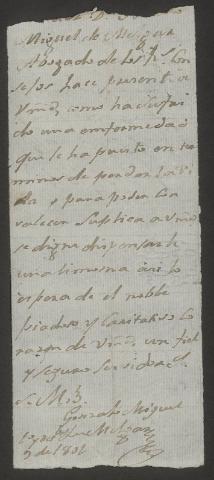 Miguel de Melgar
Abogado de los Rs. Con
sejos hace presente a
Vmd, como ha sufri
do una emfermedad
que le ha puesto en ter
minos de perder la vi
da y para poder con
valecer suplica a Vmd
se digne dispensarle
una limosna asi lo
espera de el noble
piadoso y caritativo Co
razon de Vmd, un fiel
y seguro servidor
Gonzalo Miguel
de Melgar